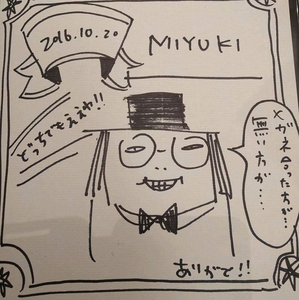 2016.10.20
MIYUKI
どっちでもええわ!!
メガネ合った方が…
無い方が……
ありがで!!